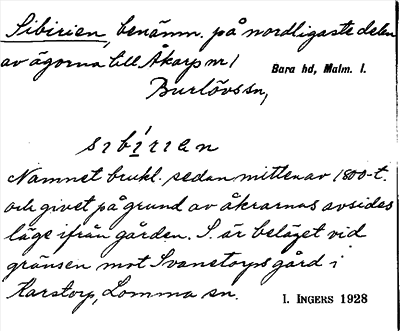 Sibirien, benämn. på nordligaste delen
av ägorna till Åkarp nr 1
Bara hd, Malm. l.
Burlövs sn,
sibírien
Namnet brukl. sedan mitten av 1800-t.
och givet på grund av åkrarnas avsides
läge ifrån gården. S. är beläget vid
gränsen mot Svanetorps gård i
Karstorp, Lomma sn.
I. INGERS 1928